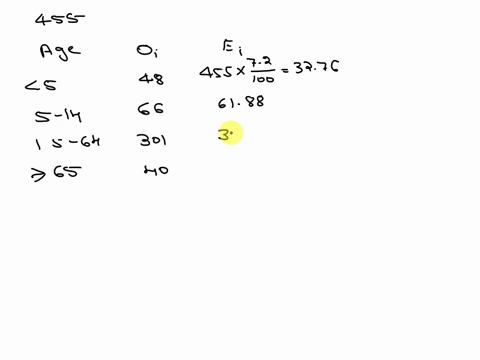 455
Age Oi Ei
<5 48 455 × 7.2/100 = 32.76
5-14 66 61.88
15-64 301 3.
≥65 40